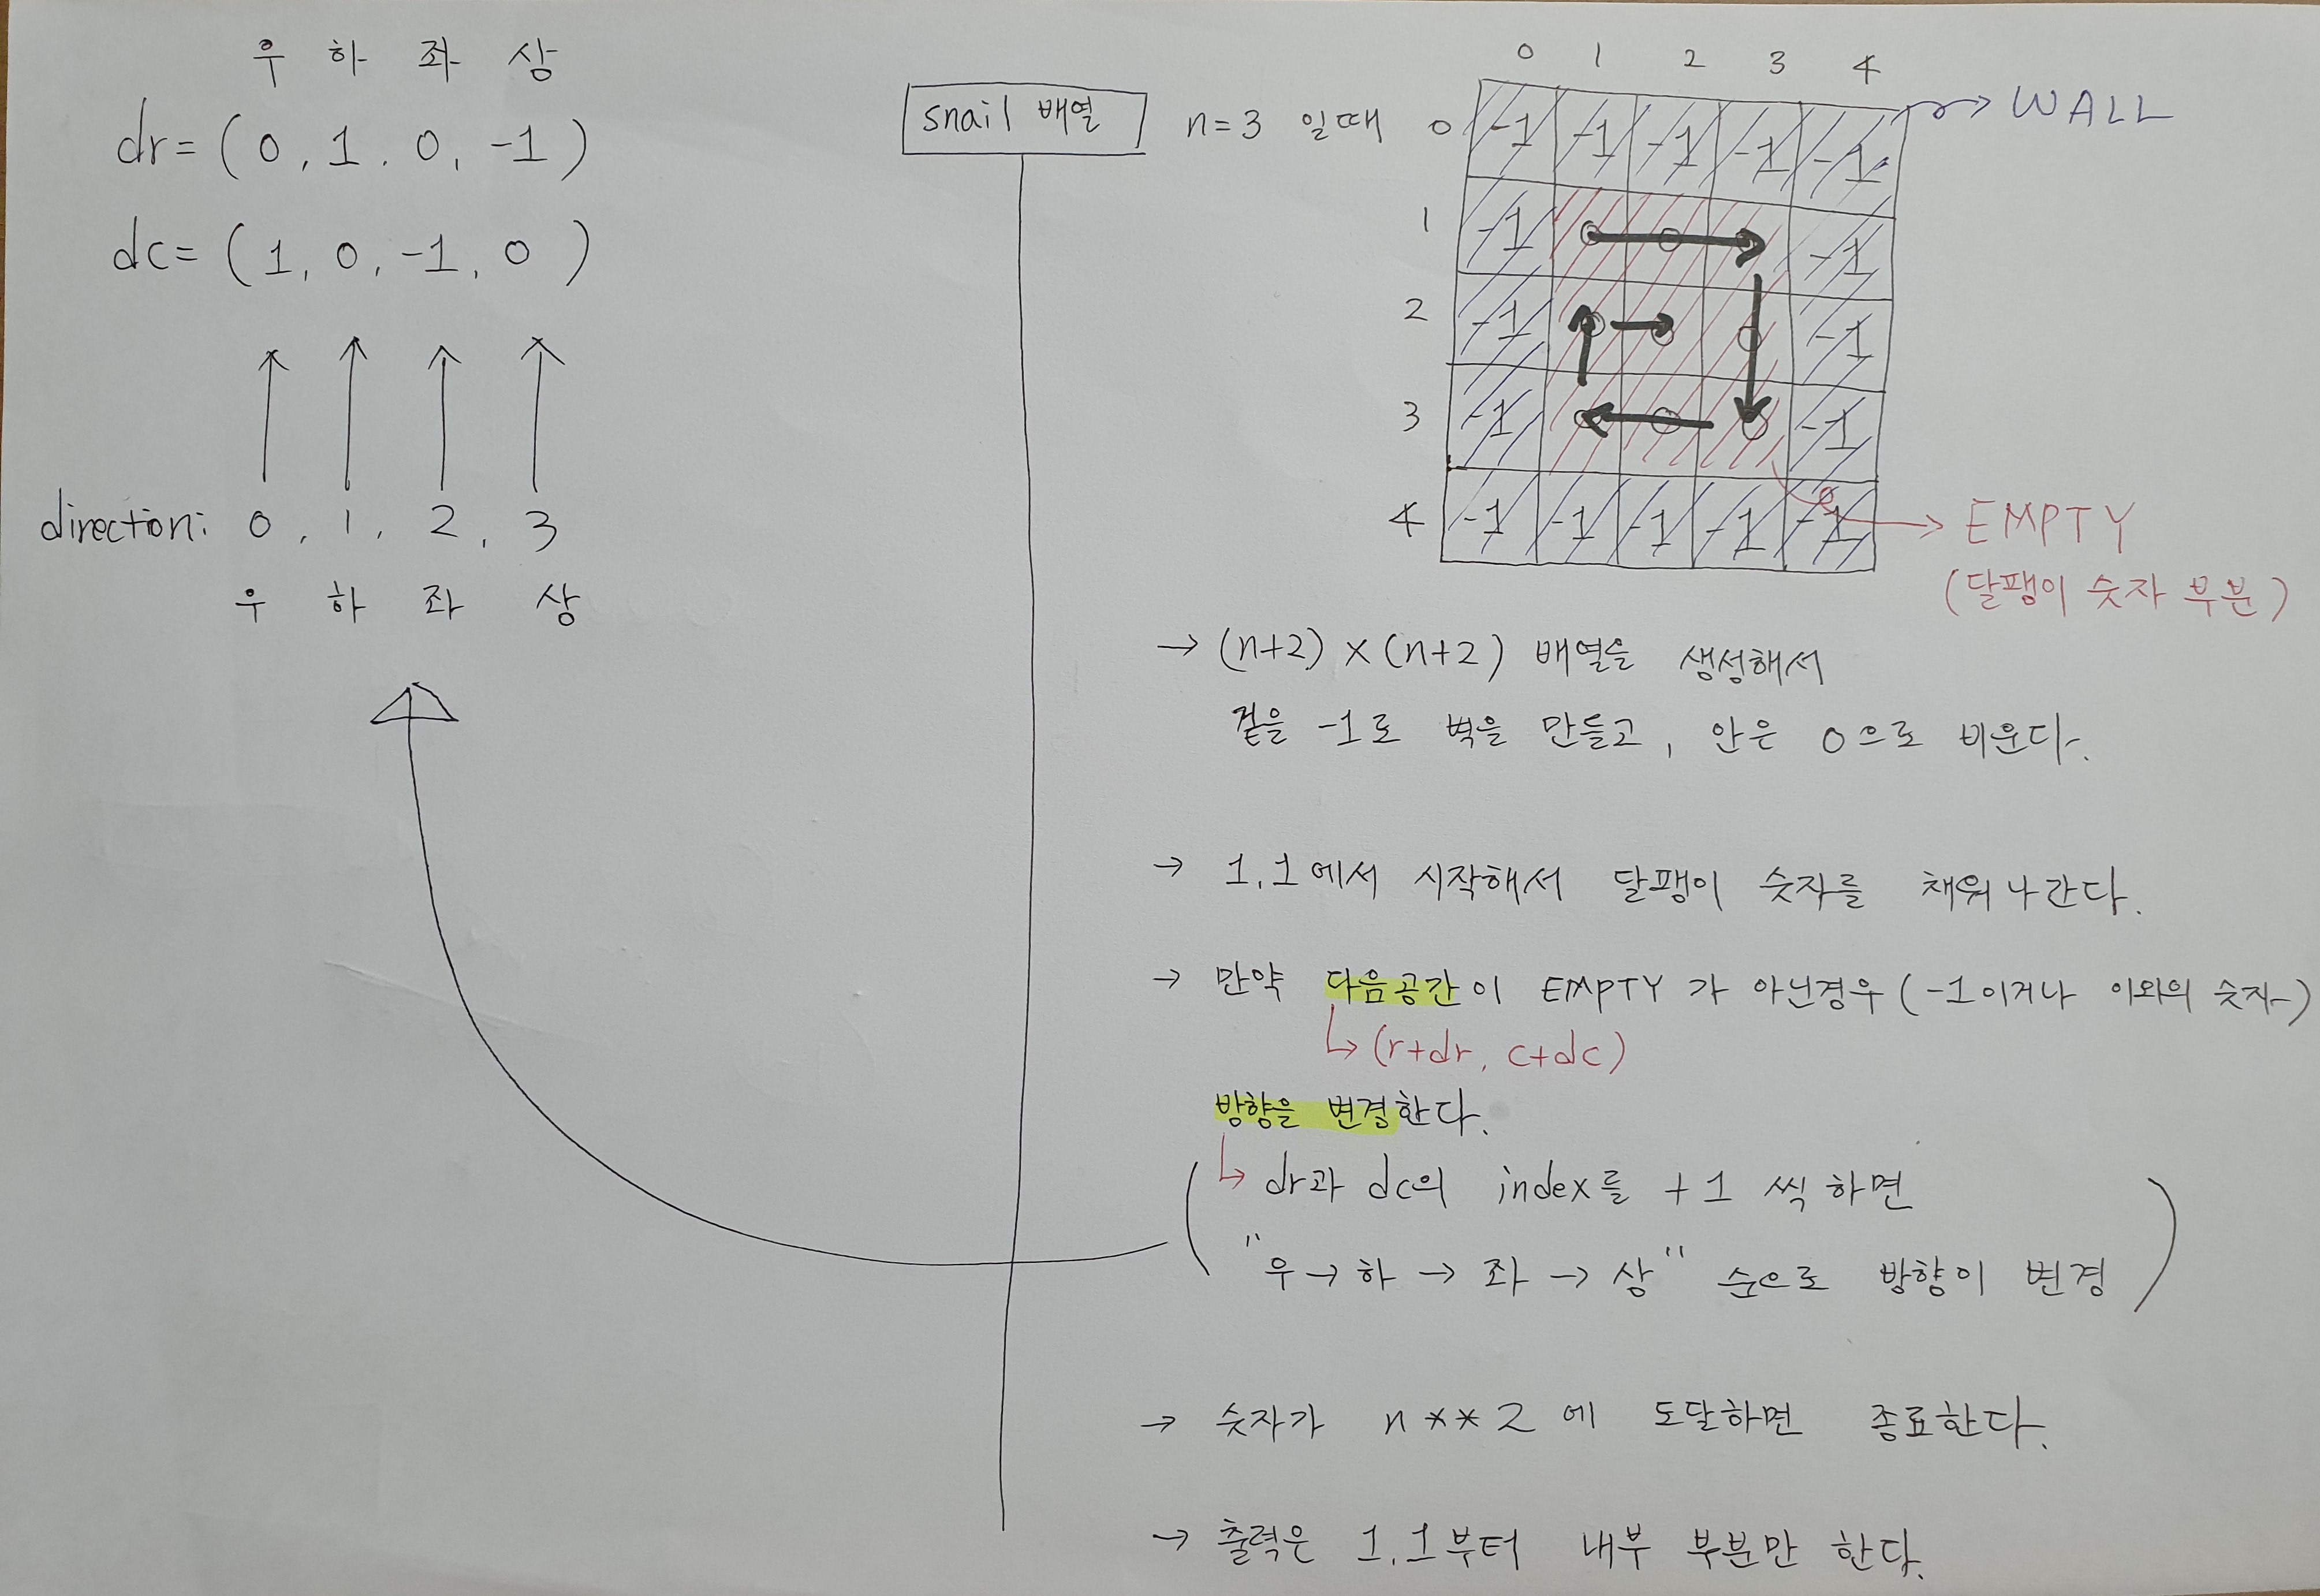 우 하 좌 상
dr = ( 0 , 1 . 0 , -1 )
dc = ( 1 , 0 , -1 , 0 )
direction: 0 , 1 , 2 , 3
우 하 좌 상
snail 배열
n=3 일때
0 1 2 3 4
0 -1 -1 -1 -1 -1
1 -1 0 0 0 -1
2 -1 0 0 0 -1
3 -1 0 0 0 -1
4 -1 -1 -1 -1 -1
→ WALL
→ EMPTY
(달팽이 숫자 부분)
→ (n+2) × (n+2) 배열을 생성해서
겉을 -1로 벽을 만들고, 안은 0으로 비운다.
→ 1,1에서 시작해서 달팽이 숫자를 채워나간다.
→ 만약 다음공간이 EMPTY가 아닌경우 (-1이거나 이외의 숫자)
↳ (r+dr, c+dc)
방향을 변경한다.
↳ dr과 dc의 index를 +1씩 하면
"우 → 하 → 좌 → 상" 순으로 방향이 변경
→ 숫자가 n**2에 도달하면 종료한다.
→ 출력은 1,1부터 내부 부분만 한다.